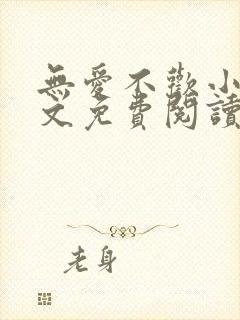 無愛不歡小
文免費閱讀
老身